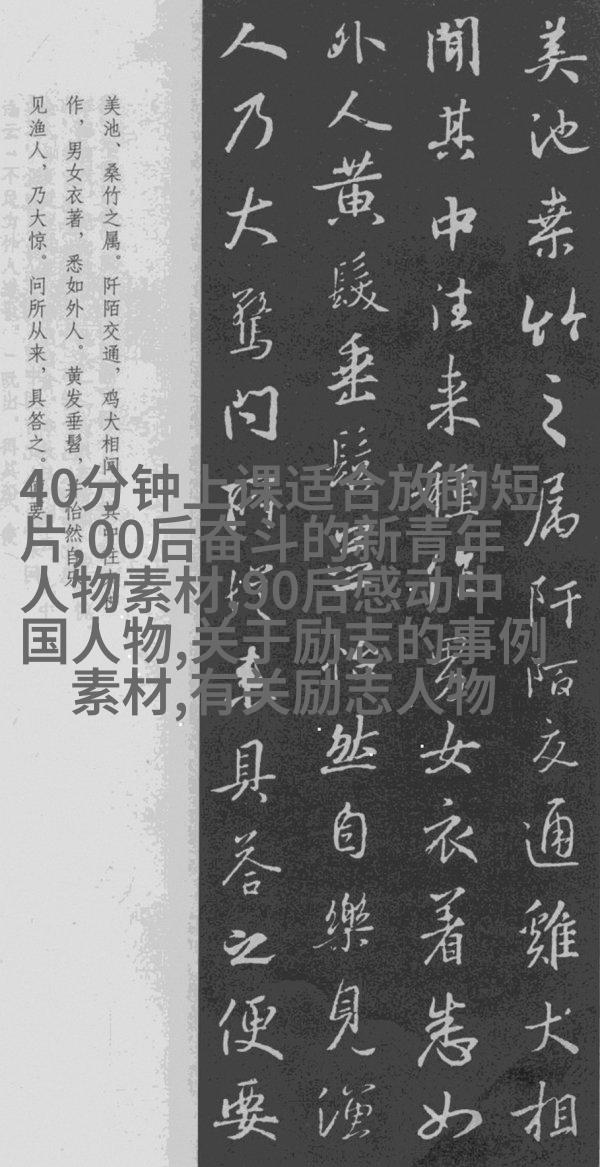 美池桑竹之属阡陌交通雞犬相
聞其中往来種作男女衣着悉如
外人黄髮垂髫並怡然自樂見漁
人乃大驚问所從来具答之便要
美池、桑竹之属。阡陌交通，鸡犬相闻。其中往来
作，男女衣著，悉如外人。黄发垂髫，并怡然自乐
见渔人，乃大惊。问所从来，具答之。便要
40分钟上课适合放的短
片,00后奋斗的新青年
人物素材,90后感动中
国人物,关于励志的事例
素材,有关励志人物